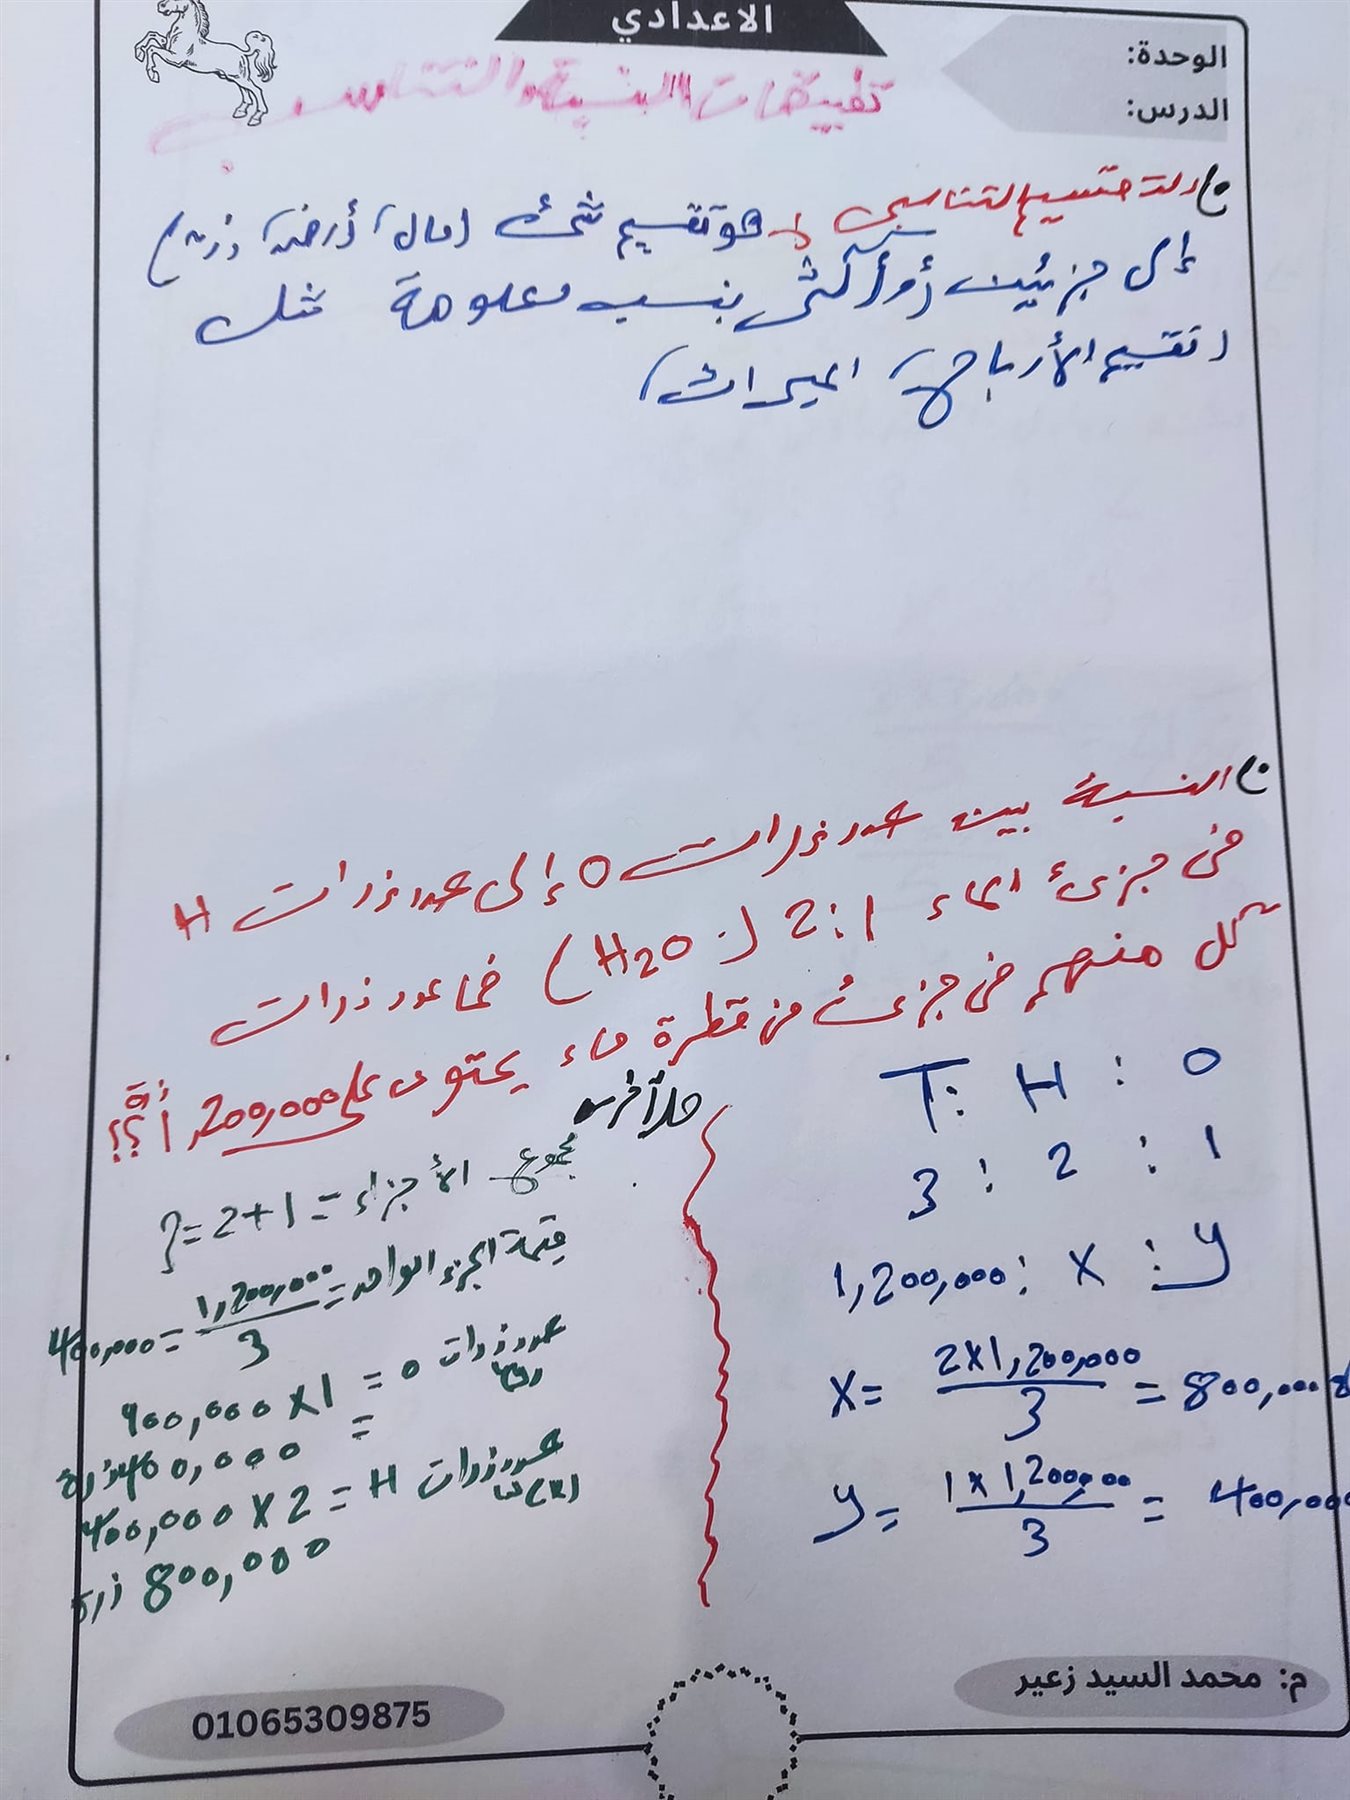 الاعدادي
الوحدة:
الدرس:
تطبيقات النسبة والتناسب
التقسيم التناسبى هو تقسيم شئ (مال، أرض، وزن)
إلى جزئين (أو أكثر) بنسب معلومة مثل
(تقسيم الأرباح، الميراث)
النسبة بين عدد ذرات O إلى عدد ذرات H
فى جزئ الماء 2:1 (H2O) فما عدد ذرات
كل منهم فى جزئ من قطرة ماء يحتوى على 1,200,000 ذرة؟؟
T : H : O
3 : 2 : 1
1,200,000 : X : y
X = 2x1,200,000 / 3 = 800,000
y = 1x1,200,000 / 3 = 400,000
حل آخر
مجموع الأجزاء = 1+2 = 3
قيمة الجزء الواحد = 1,200,000 / 3 = 400,000
عدد ذرات O = 1 X 400,000
= 400,000 ذرة
عدد ذرات H = 2 X 400,000
800,000 ذرة
م: محمد السيد زعير
01065309875